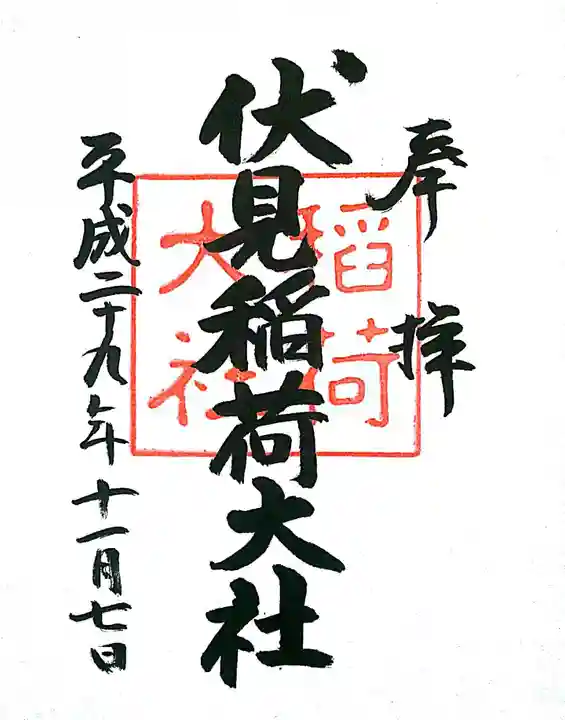 奉拝
伏見稲荷大社
稲荷
大社
平成二十九年十一月七日